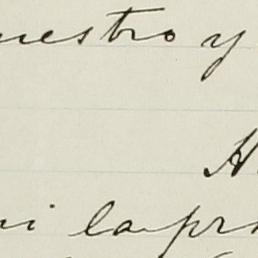 uestro y
H
ni la pr